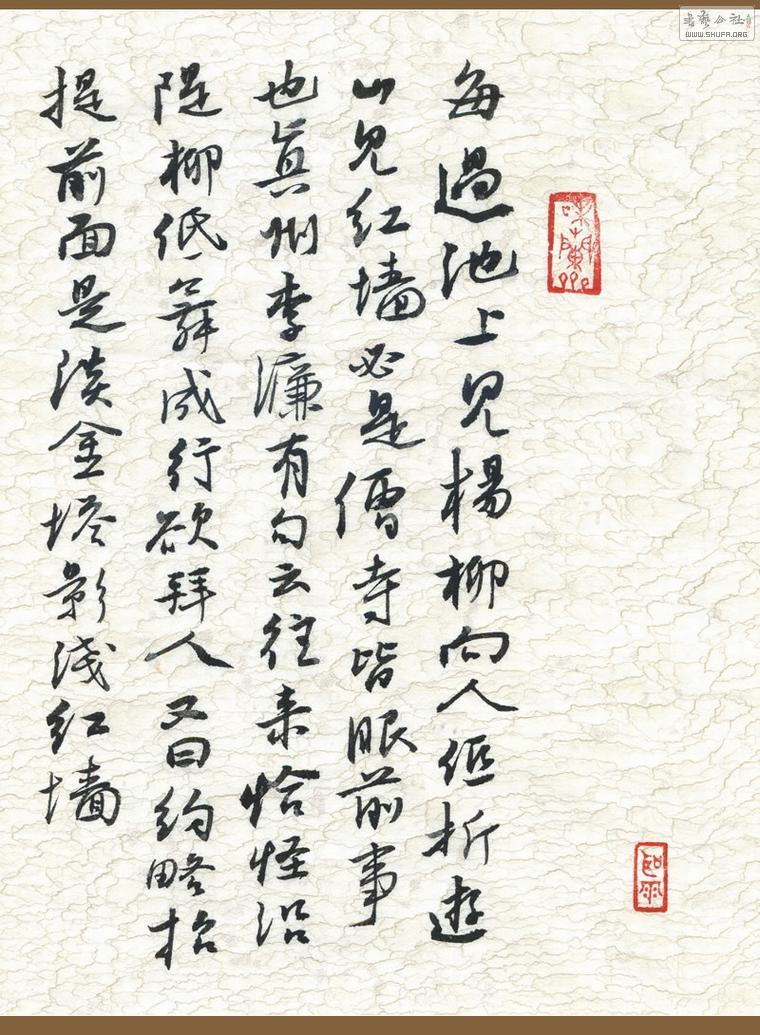 每過池上見楊柳向人伛折遊
山見红墙必是僧寺皆眼前事
也眞州李濂有句云往来恰怪沿
隄柳低舞成行欲拜人又曰约略招
提前面是淡金塔影淺红墙
書藝公社
WWW.SHUFA.ORG